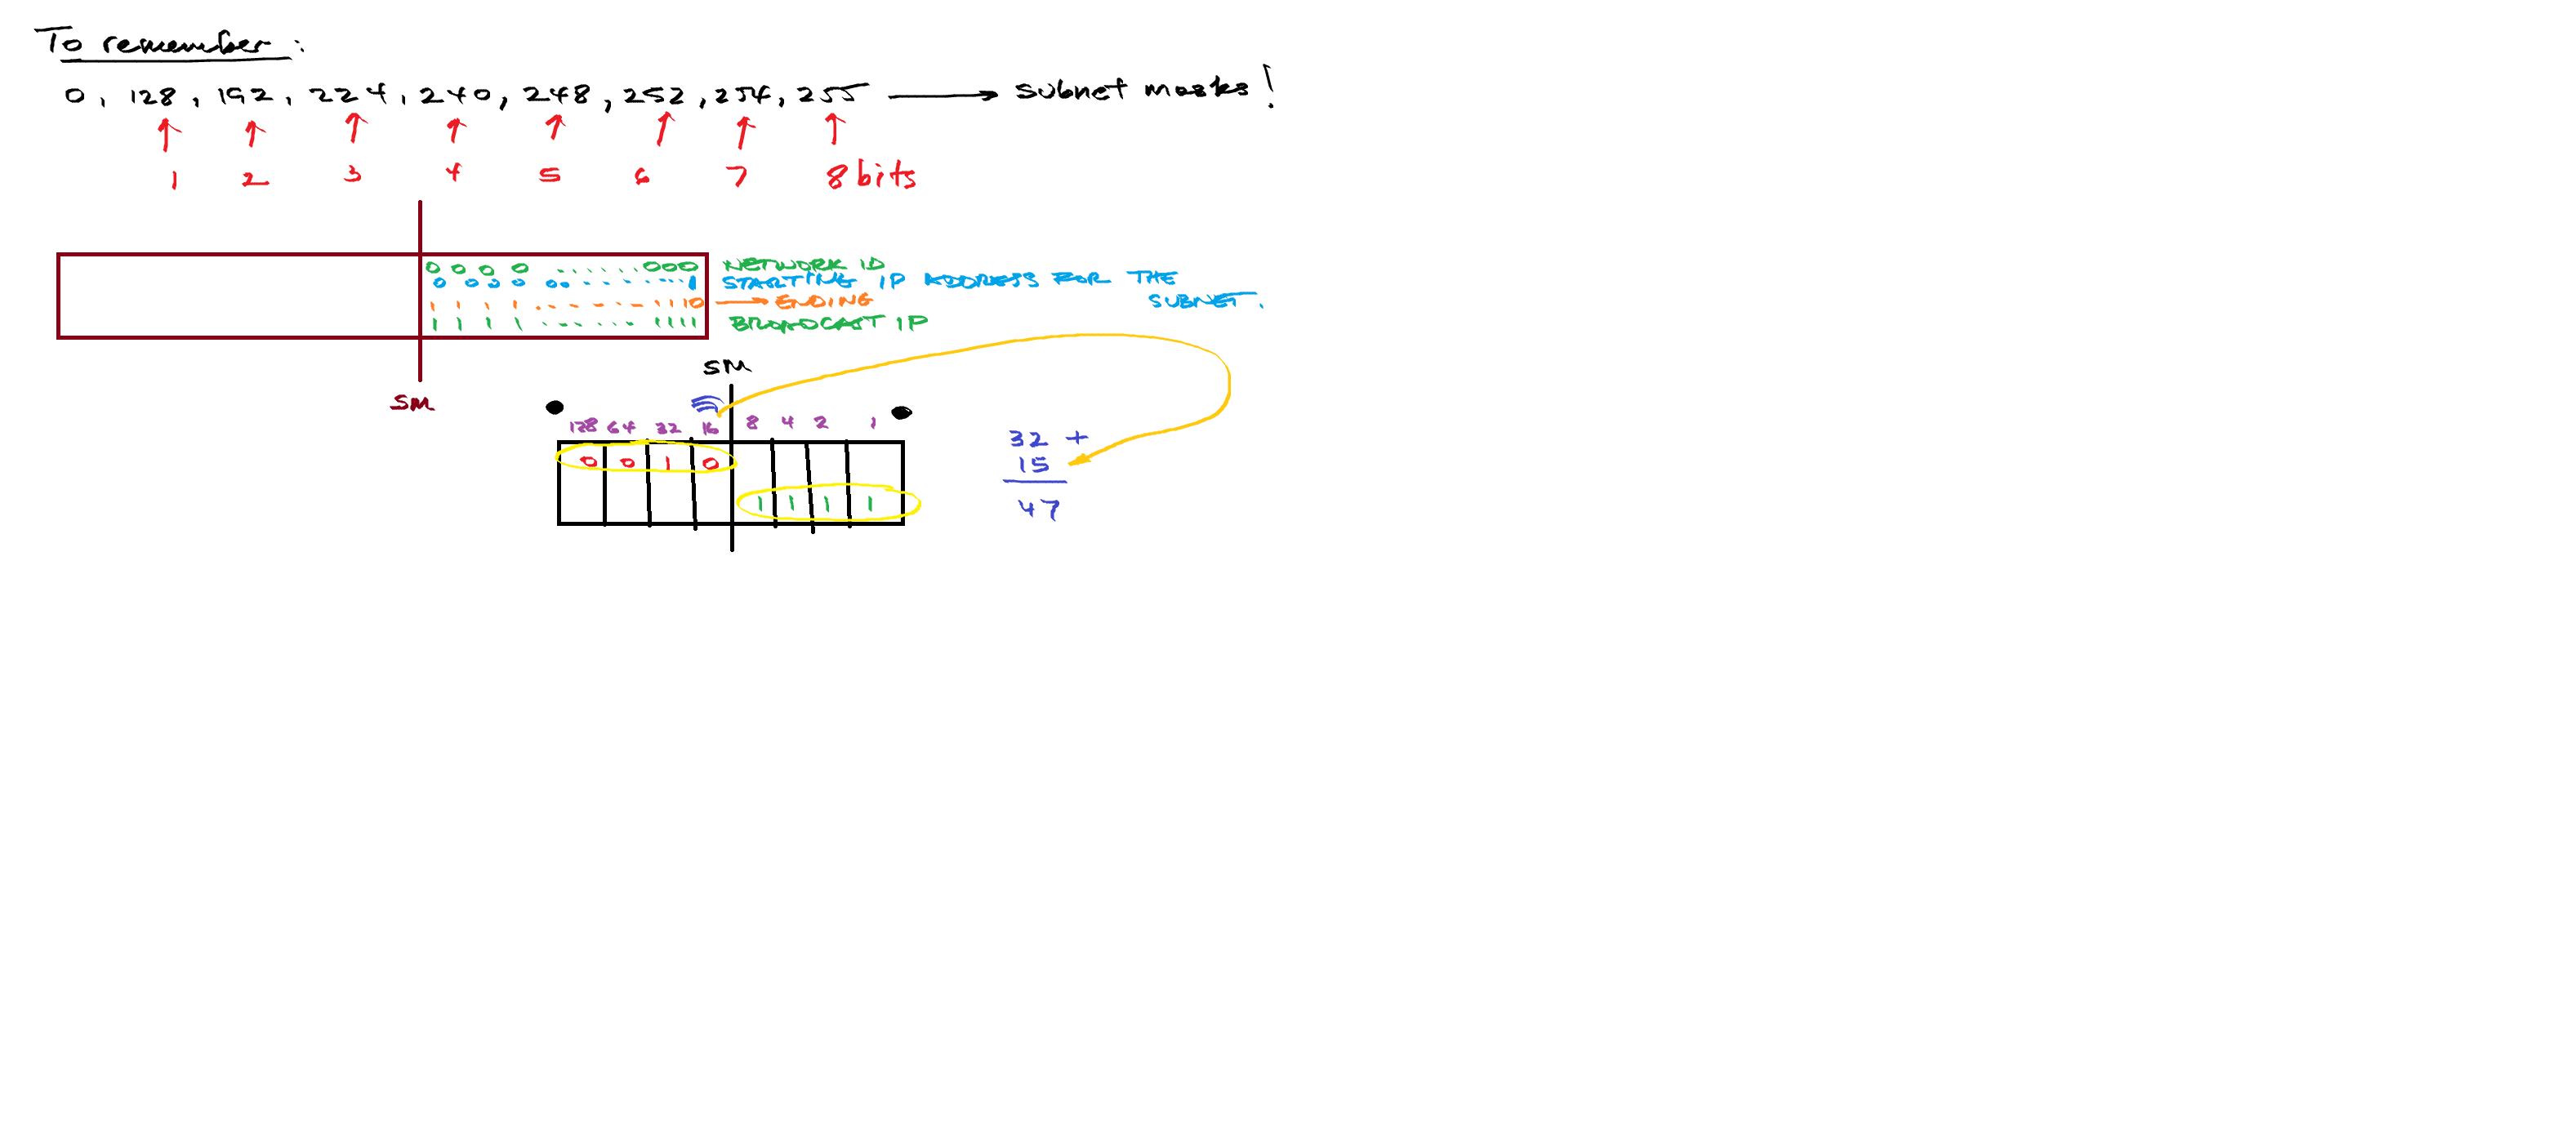 To remember:
0, 128, 192, 224, 240, 248, 252, 254, 255 → subnet masks!
1 2 3 4 5 6 7 8 bits
0 0 0 0 ....... 000 NETWORK ID
0 0 0 0 00 ....... 1 STARTING IP ADDRESS FOR THE
SUBNET.
1 1 1 1 ....... 1110 → ENDING
1 1 1 1 ....... 1111 BROADCAST IP
SM
SM
128 64 32 16 8 4 2 1
0 0 1 0
1 1 1 1
32 +
15
47